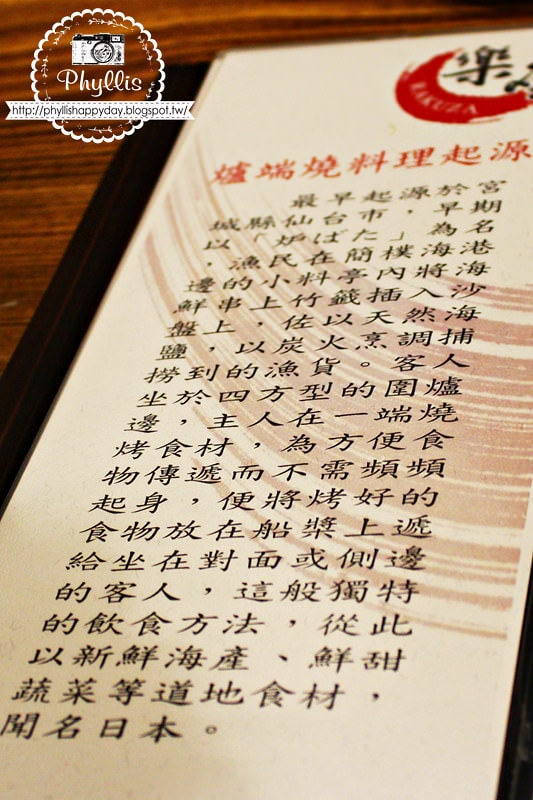 Phyllis
http://phyllishappyday.blogspot.tw/
樂
RAKUZA
爐端燒料理起源
最早起源於宮
城縣仙台市，早期
以「炉ばた」為名
，漁民在簡樸海港
邊的小料亭內將海
鮮串上竹籤插入沙
盤上，佐以天然海
鹽，以炭火烹調捕
撈到的漁貨。客人
坐於四方型的圍爐
邊，主人在一端燒
烤食材，為方便食
物傳遞而不需頻頻
起身，便將烤好的
食物放在船槳上遞
給坐在對面或側邊
的客人，這般獨特
的飲食方法，從此
以新鮮海產、鮮甜
蔬菜等道地食材，
聞名日本。